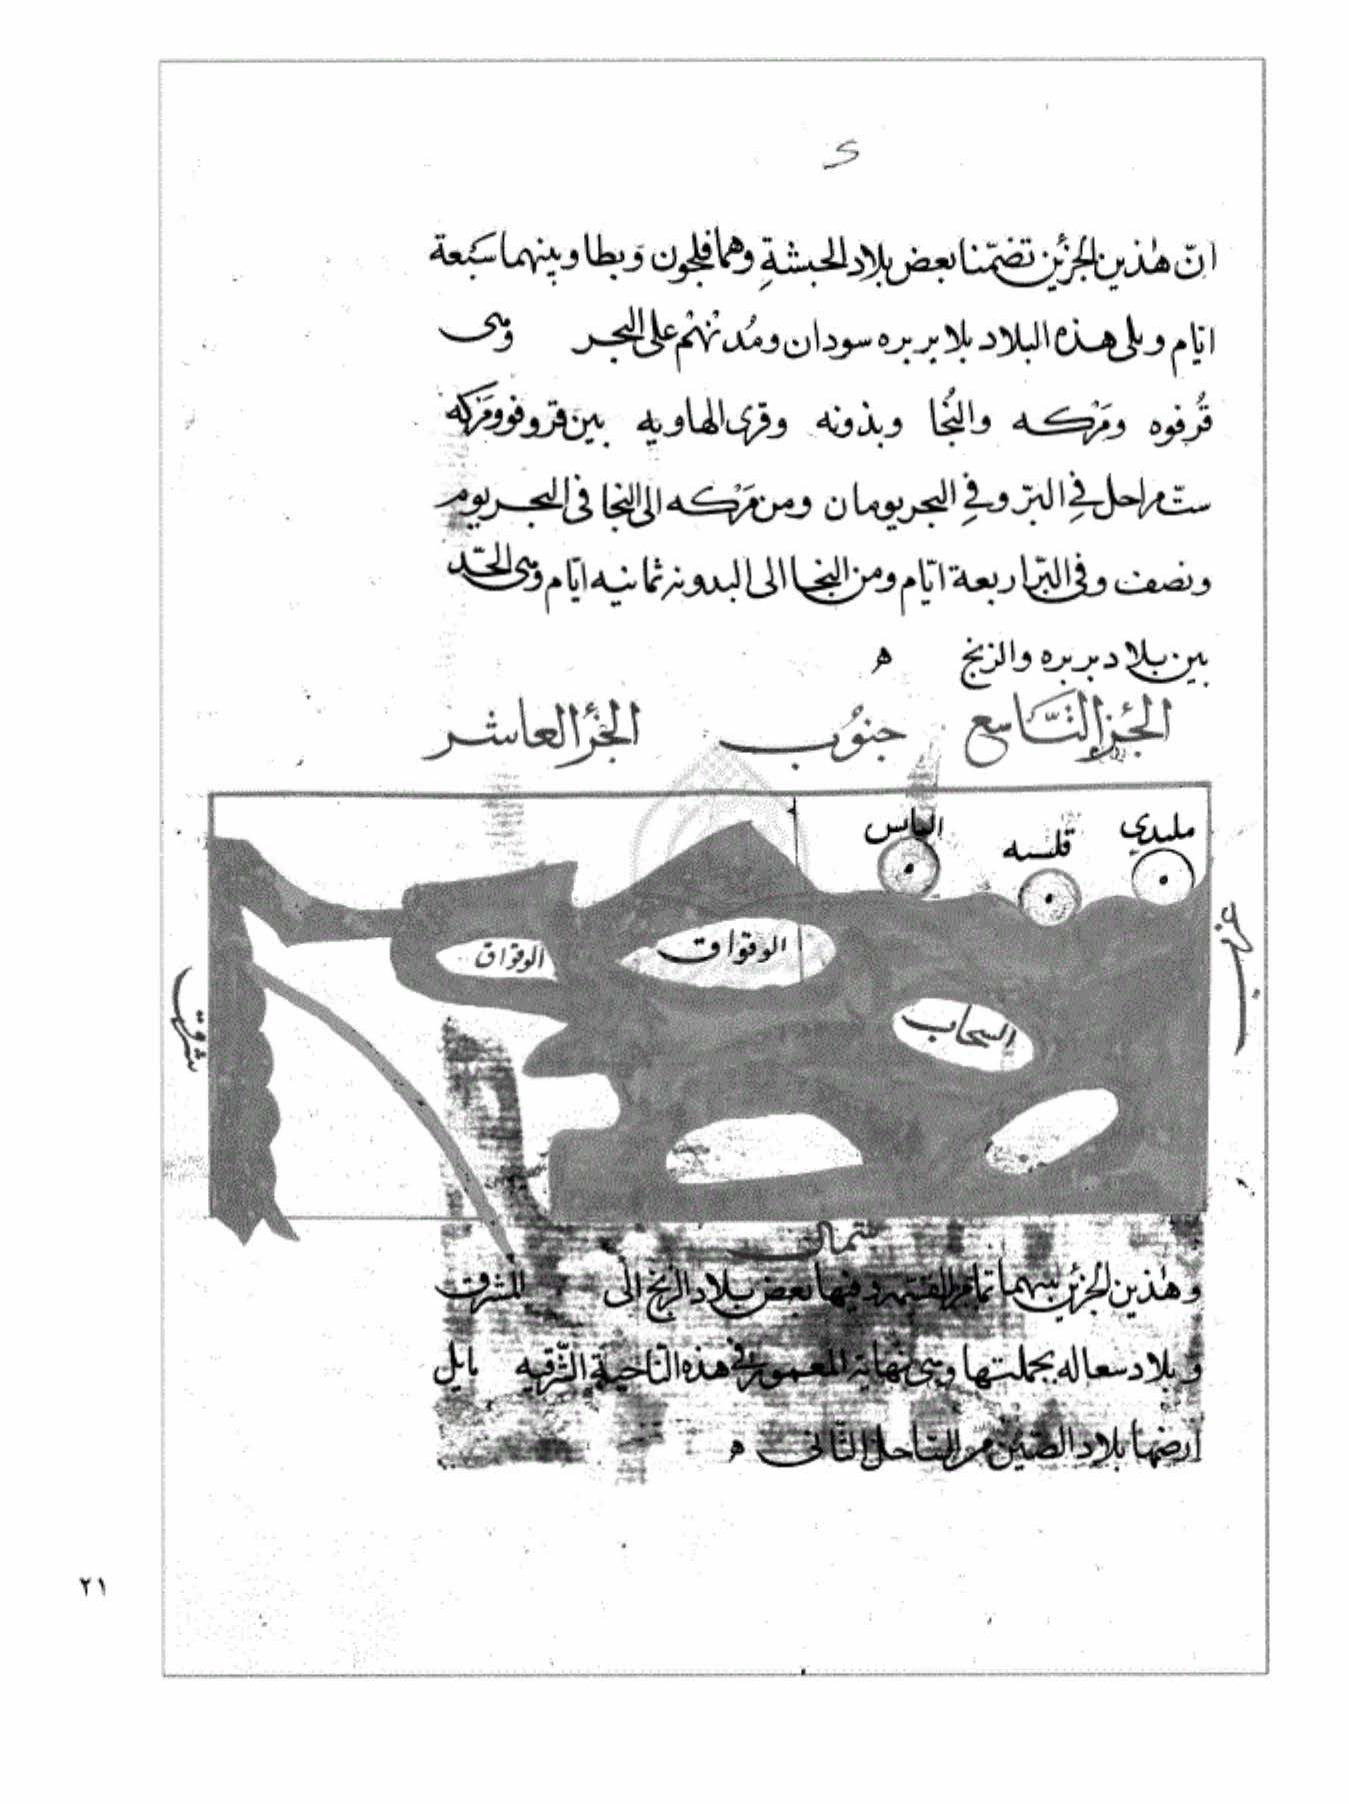 انّ هٰذين الجزئين تضمّنا بعض بلاد الحبشةِ وهما فلجون وَبطا وبينهما سَبعة
ايّام ويلى هذه البلاد بلا بربره سودان ومُدنهُم على البحر وهى
قُرفوه ومَرْكه والنُجا وبذونه وقرى الهاويه بين قرفوه ومَركه
ستّ مراحل فِي البرّ وفِي البحر يومان ومن مَرْكه الى النجا فى البحر يوم
ونصف وفى البرّ اربعة ايّام ومن النجا الى البدونه ثمانيه ايّام وهى الحّد
بين بلاد بربره والزنج ه
الجزء التّاسع جنوُب الجزء العاشر
ملبدي
قلنسه
الباس
غرب
الوقواق
الوقواق
السحاب
شرق
شمال
وهٰذين الجزئين بينهما تمام القسمه وفيها بعض بلاد الزنج الى المشرق
وبلاد سعاله بجملتها وهى نهاية المعمور فى هذه النّاحية الشّرقيه يايل
ارضها بلاد الصّين من الساحل الثّانى ه
٢١